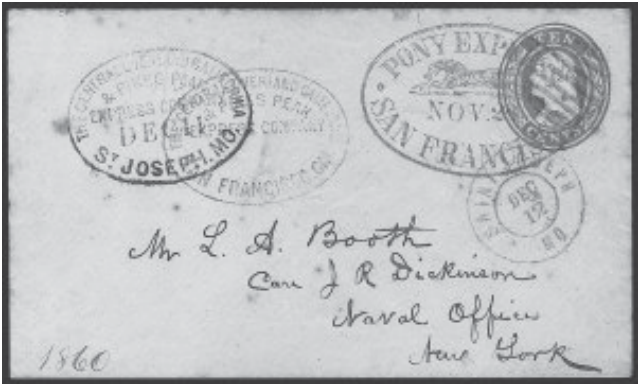 THE CENTRAL OVERLAND CALIFORNIA
& PIKES PEAK
EXPRESS COMPANY
DEC 11
ST JOSEPH, MO.
PIKES PEAK
EXPRESS COMPANY
SAN FRANCISCO CA
PONY EXP
NOV. 2
SAN FRANCIS
TEN
CENTS
SAINT JOSEPH
DEC
12
MO
Mr L. A. Booth
Care J R Dickinson
Naval Office
New York
1860